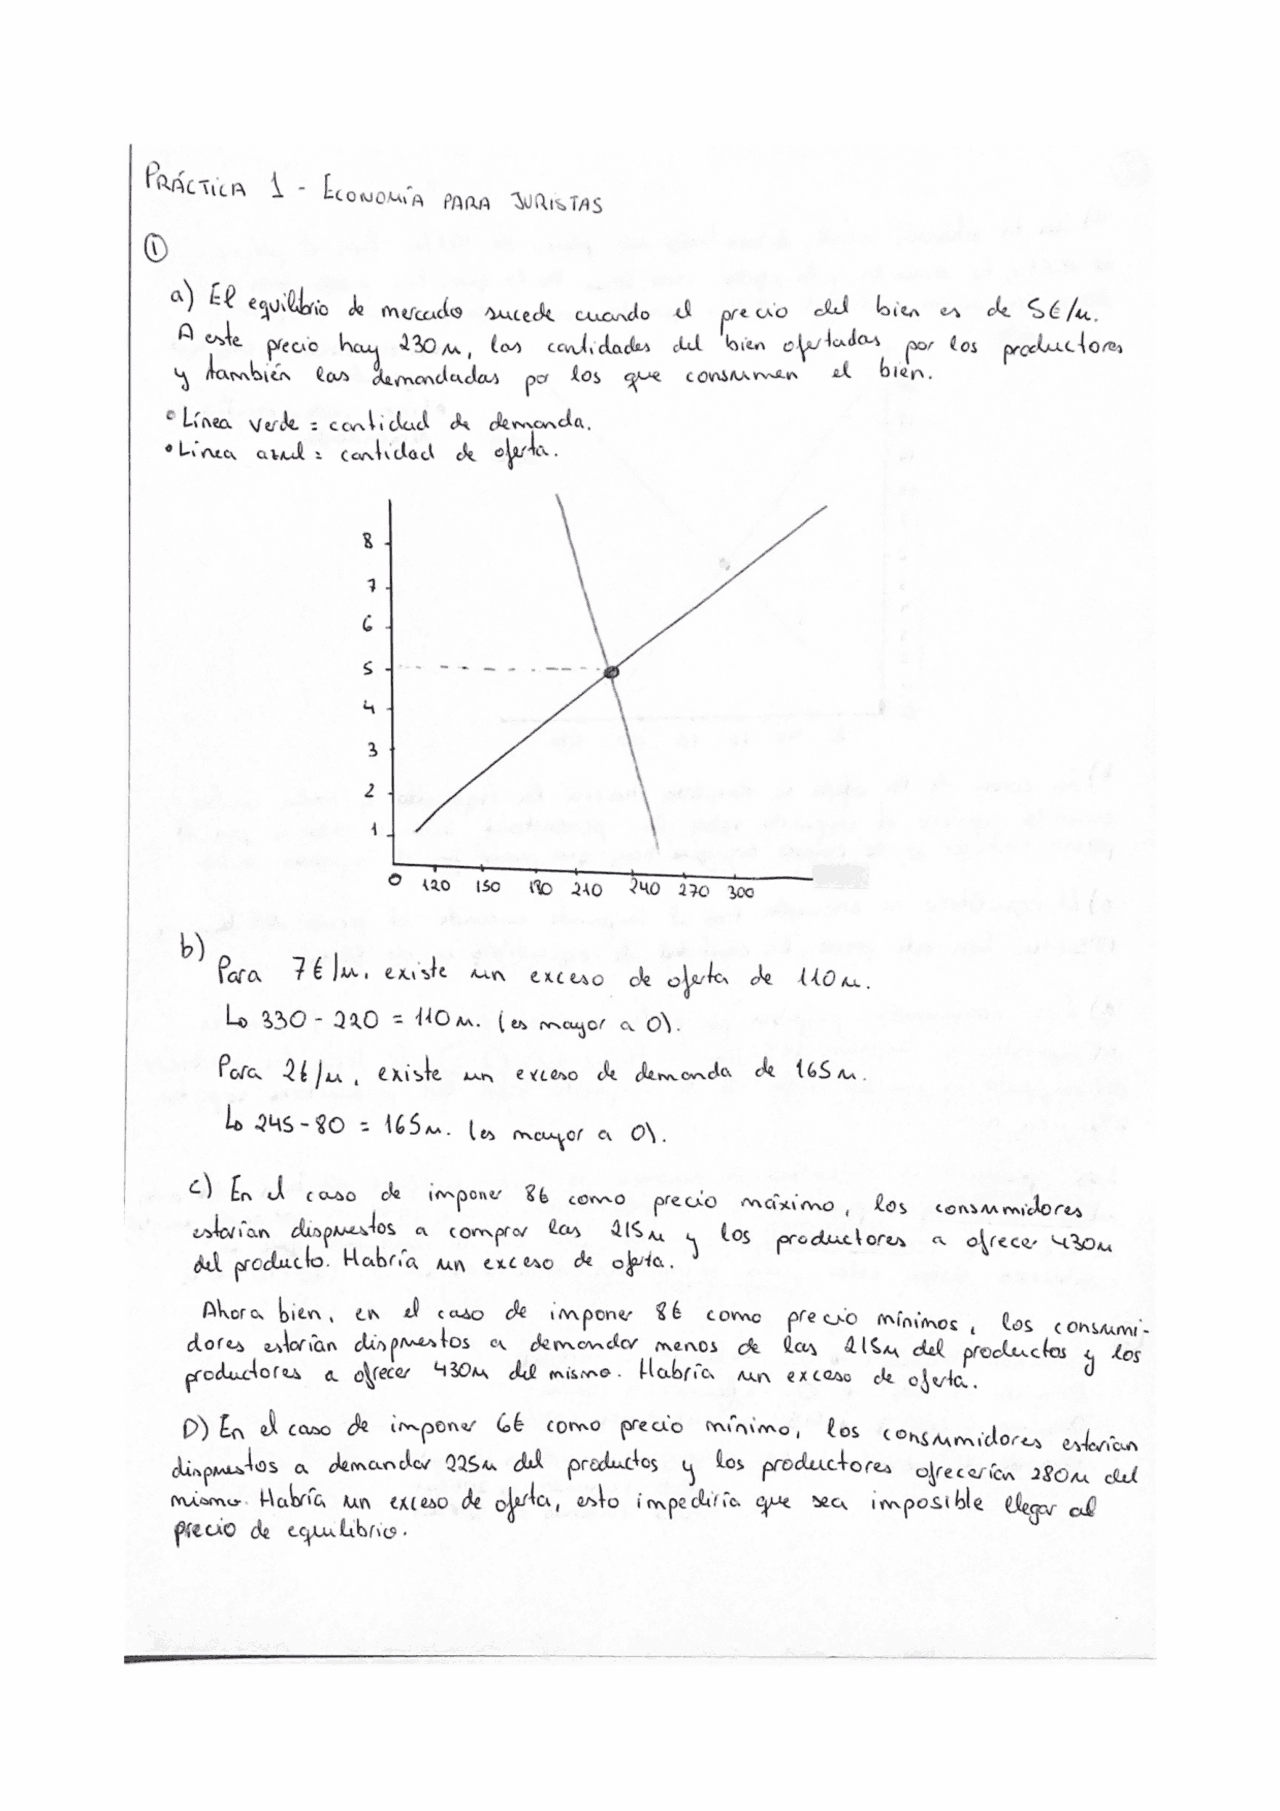 PRÁCTICA 1 - ECONOMÍA PARA JURISTAS
1
a) El equilibrio de mercado sucede cuando el precio del bien es de 5€/u.
A este precio hay 230u, las cantidades del bien ofertadas por los productores
y también las demandadas por los que consumen el bien.
• Línea verde = cantidad de demanda.
• Línea azul = cantidad de oferta.
8
7
6
5
4
3
2
1
0 120 150 180 210 240 270 300
b)
Para 7€/u. existe un exceso de oferta de 110u.
↳ 330 - 220 = 110u. (es mayor a 0).
Para 2€/u, existe un exceso de demanda de 165u.
↳ 245 - 80 = 165u. (es mayor a 0).
c) En el caso de imponer 8€ como precio máximo, los consumidores
estarían dispuestos a comprar las 215u y los productores a ofrecer 430u
del producto. Habría un exceso de oferta.
Ahora bien, en el caso de imponer 8€ como precio mínimos, los consumi-
dores estarían dispuestos a demandar menos de las 215u del productos y los
productores a ofrecer 430u del mismo. Habría un exceso de oferta.
D) En el caso de imponer 6€ como precio mínimo, los consumidores estarían
dispuestos a demandar 225u del productos y los productores ofrecerían 280u del
mismo. Habría un exceso de oferta, esto impediría que sea imposible llegar al
precio de equilibrio.